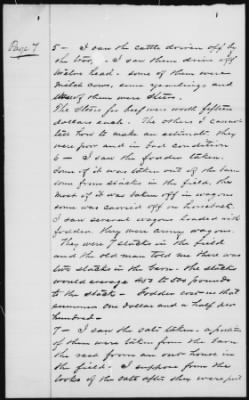 1
Page 7
5 - I saw the cattle driven off by
I saw them driven off
some of them were
milch cows, some yearlings and
of them were steers.
The steers for beef were worth fifteen
dollars each. The others I cannot
tell how to make an estimate they
were poor and in bad condition
6 - I saw the fodder taken.
Some of it was taken out of the barn
some from stacks in the field, the
most of it was taken off in wagons
some was carried off on horseback.
I saw several wagons loaded with
fodder. they were army wagons.
They were 7 stacks in the field
and the old man told me there was
two stacks in the barn. the stacks
would average 450 to 500 pounds
to the stack - Fodder was that
summer one dollar and a half per
hundred -
7 - I saw the oats taken - a portion
of them were taken from the barn
the rest from an out house in
the field. I suppose from the
looks of the oats after they were put